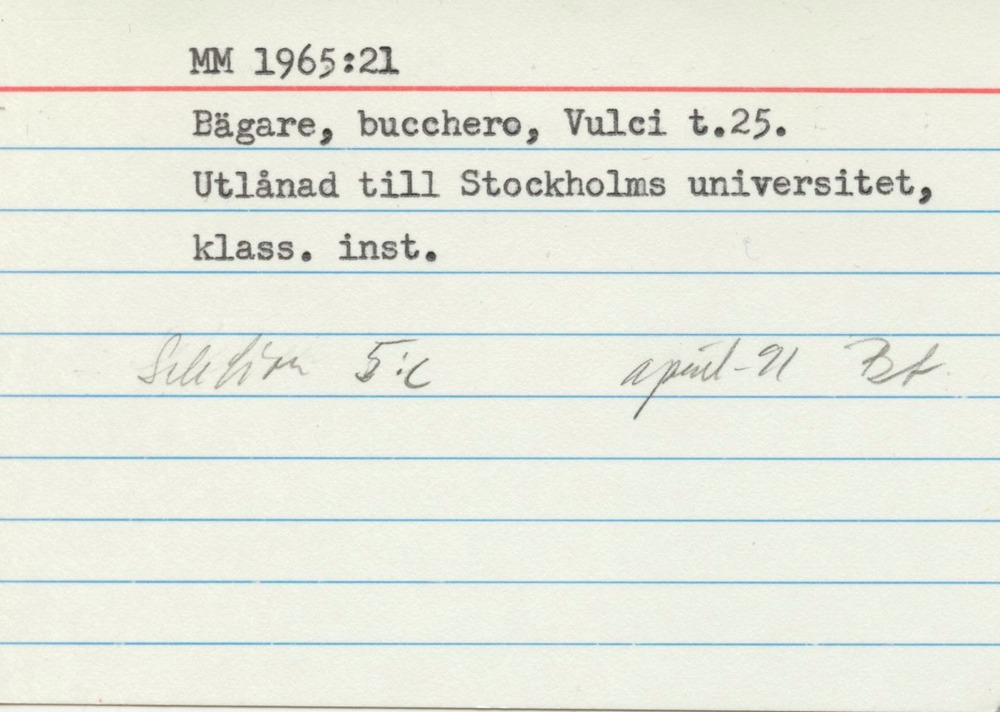 MM 1965:21
Bägare, bucchero, Vulci t.25.
Utlånad till Stockholms universitet,
klass. inst.
Sektion 5:c april-91